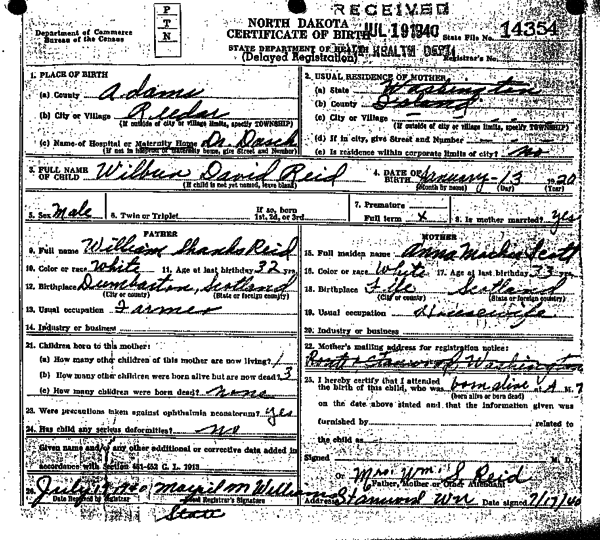 RECEIVED
P
T
N
NORTH DAKOTA
JUL 19 1940
Department of Commerce
Bureau of the Census
CERTIFICATE OF BIRTH
State File No. 14354
STATE DEPARTMENT OF HEALTH
HEALTH DEPT.
(Delayed Registration)
Registrar's No.
1. PLACE OF BIRTH
(a) County Adams
(b) City or Village Reeder
(If outside of city or village limits, specify TOWNSHIP)
(c) Name of Hospital or Maternity Home Dr. Dasch
(If not in hospital or maternity home, give Street and Number)
2. USUAL RESIDENCE OF MOTHER
(a) State Washington
(b) County Island
(c) City or Village
(If outside of city or village limits, specify TOWNSHIP)
(d) If in city, give Street and Number
(e) Is residence within corporate limits of city? no
3. FULL NAME OF CHILD Wilbur David Reid
(If child is not yet named, leave blank)
4. DATE OF BIRTH January-13 1920
(Month by name) (Day)
5. Sex Male
6. Twin or Triplet
If so, born 1st, 2d, or 3rd
7. Premature
Full term x
8. Is mother married? yes
FATHER
9. Full name William Shanks Reid
10. Color or race White 11. Age at last birthday 32 yrs.
12. Birthplace Dumbarton, Scotland
(City or county) (State or foreign country)
13. Usual occupation Farmer
14. Industry or business
MOTHER
15. Full maiden name Anna Scott
16. Color or race White 17. Age at last birthday 33 yrs.
18. Birthplace Fife Scotland
(City or county) (State or foreign country)
19. Usual occupation Housewife
20. Industry or business
21. Children born to the mother:
(a) How many other children of this mother are now living? 1
(b) How many other children were born alive but are now dead? 3
(c) How many children were born dead? none
22. Mother's mailing address for registration notice:
Stanwood, Washington
23. Were precautions taken against ophthalmia neonatorum? yes
24. Has child any serious deformities? no
25. I hereby certify that I attended the birth of this child, who was born alive at A M.
(born alive or born dead)
on the date above stated and that the information given was
furnished by related to
the child as
Given name and/or any other additional or corrective data added in
accordance with Section 481-453 C. L. 1913
Signed M. D.
Or Mrs. Wm. S Reid
Father, Mother or Other Attendant
26. July
Date Received by Registrar
Registrar's Signature
State
Address Stanwood Wn Date signed 7/17/40